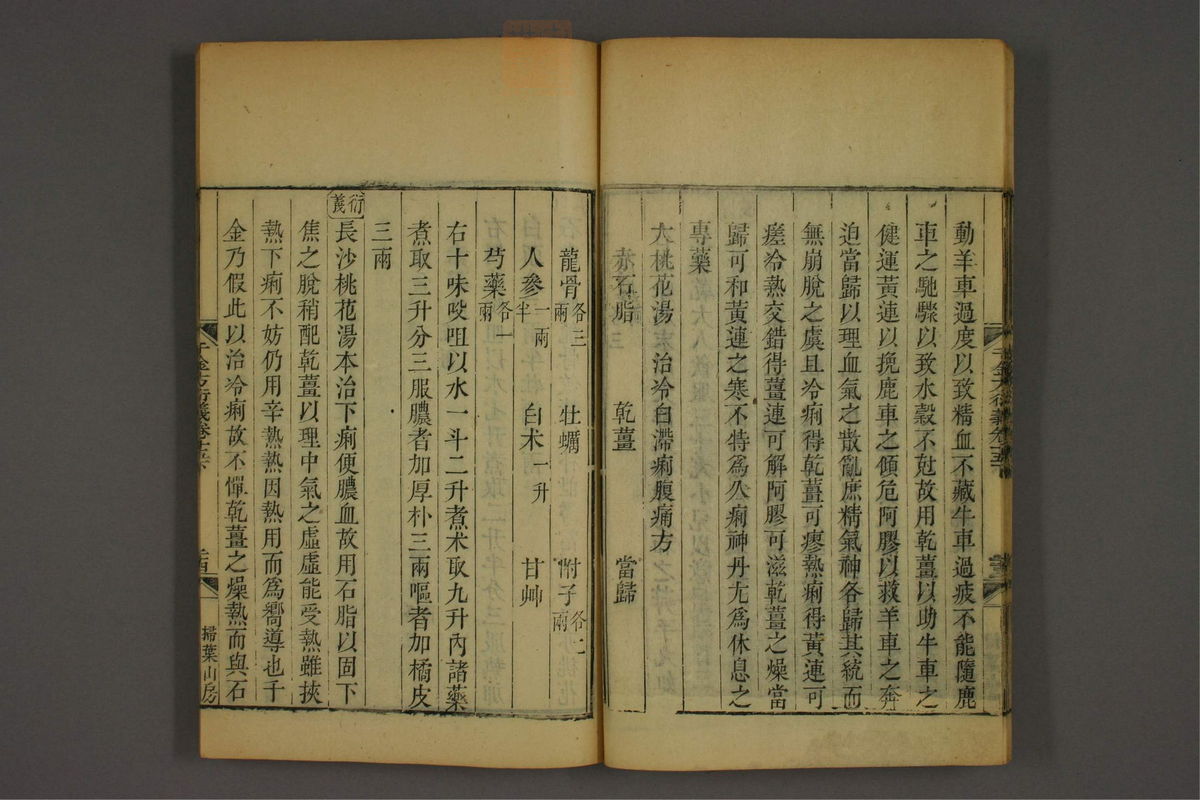 動羊車過度以致精血不藏牛車過疲不能隨鹿
車之馳驟以致水穀不尅故用乾薑以助牛車之
健運黃連以挽鹿車之傾危阿膠以救羊車之奔
迫當歸以理血氣之散亂庶精氣神各歸其統而
無崩脫之虞且冷痢得乾薑可瘳熱痢得黃連可
瘥冷熱交錯得薑連可解阿膠可滋乾薑之燥當
歸可和黃連之寒不特爲久痢神丹尤爲休息之
專藥
大桃花湯 治冷白滯痢腹痛方
赤石脂 乾薑 當歸
龍骨各三兩 牡蠣 附子各二兩
人參一兩半 白术一升 甘艸
芍藥各一兩
右十味㕮咀以水一斗二升煮术取九升內諸藥
煮取三升分三服膿者加厚朴三兩嘔者加橘皮
三兩
衍義
長沙桃花湯本治下痢便膿血故用石脂以固下
焦之脫稍配乾薑以理中氣之虛虛能受熱雖挾
熱下痢不妨仍用辛熱熱因熱用而爲嚮導也千
金乃假此以治冷痢故不憚乾薑之燥熱而與石
千金方衍義卷十五下
掃葉山房